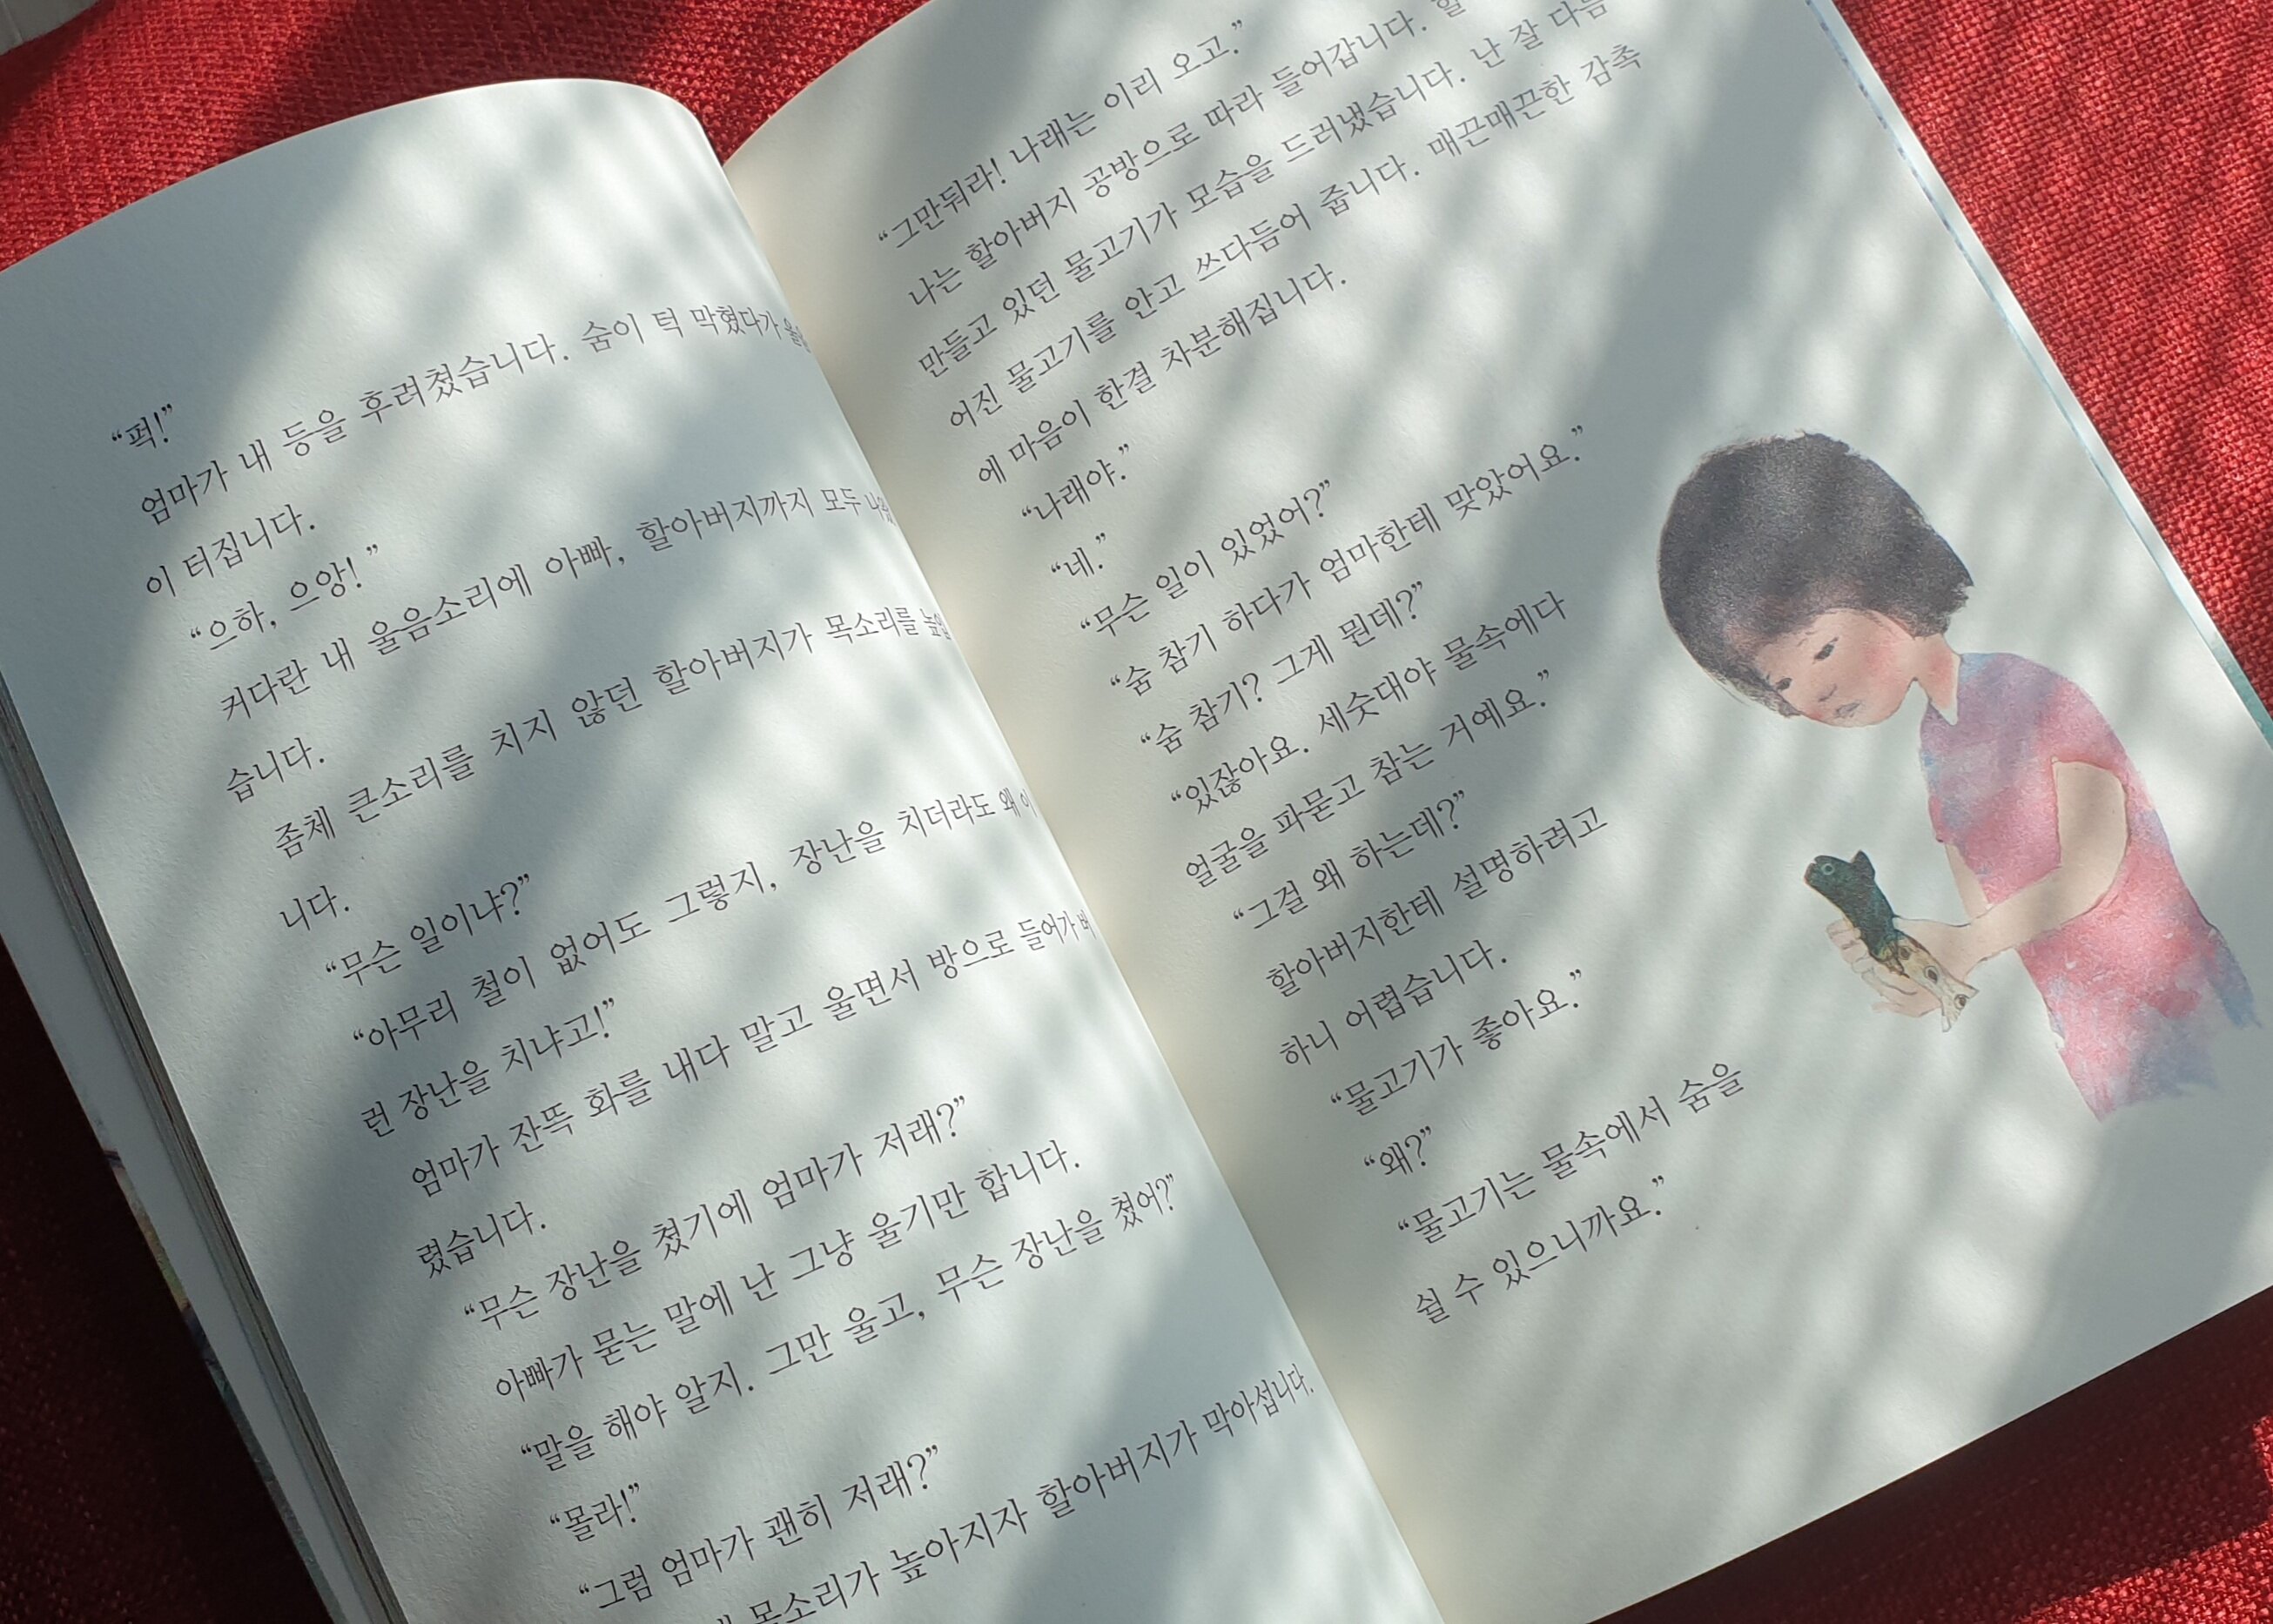 “퍽!”
엄마가 내 등을 후려쳤습니다. 숨이 턱 막혔다가
이 터집니다.
“으하, 으앙!”
커다란 내 울음소리에 아빠, 할아버지까지 모두
습니다.
좀체 큰소리를 치지 않던 할아버지가 목소리를
니다.
“무슨 일이냐?”
“아무리 철이 없어도 그렇지, 장난을 치더라도 왜 이
런 장난을 치냐고!”
엄마가 잔뜩 화를 내다 말고 울면서 방으로 들어가 버
렸습니다.
“무슨 장난을 쳤기에 엄마가 저래?”
아빠가 묻는 말에 난 그냥 울기만 합니다.
“말을 해야 알지. 그만 울고, 무슨 장난을 쳤어?”
“몰라!”
“그럼 엄마가 괜히 저래?”
목소리가 높아지자 할아버지가 막아섭니다.
“그만둬라! 나래는 이리 오고.”
나는 할아버지 공방으로 따라 들어갑니다.
만들고 있던 물고기가 모습을 드러냈습니다. 난 잘 다듬
어진 물고기를 안고 쓰다듬어 줍니다. 매끈매끈한 감촉
에 마음이 한결 차분해집니다.
“나래야.”
“네.”
“무슨 일이 있었어?”
“숨 참기 하다가 엄마한테 맞았어요.”
“숨 참기? 그게 뭔데?”
“있잖아요. 세숫대야 물속에다
얼굴을 파묻고 참는 거예요.”
“그걸 왜 하는데?”
할아버지한테 설명하려고
하니 어렵습니다.
“물고기가 좋아요.”
“왜?”
“물고기는 물속에서 숨을
쉴 수 있으니까요.”